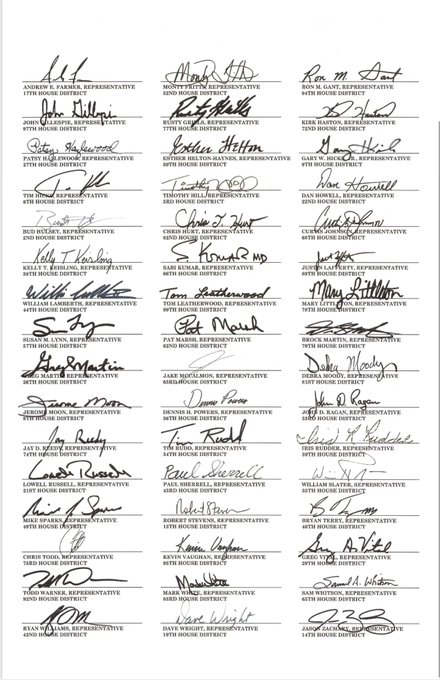 ANDREW E. FARMER, REPRESENTATIVE
17TH HOUSE DISTRICT
MONTY FRITTS, REPRESENTATIVE
32ND HOUSE DISTRICT
Ron M. Gant
RON M. GANT, REPRESENTATIVE
94TH HOUSE DISTRICT
JOHN GILLESPIE, REPRESENTATIVE
97TH HOUSE DISTRICT
Rusty Grills
RUSTY GRILLS, REPRESENTATIVE
77TH HOUSE DISTRICT
KIRK HASTON, REPRESENTATIVE
72ND HOUSE DISTRICT
Patsy Hazlewood
PATSY HAZLEWOOD, REPRESENTATIVE
27TH HOUSE DISTRICT
Esther Helton
ESTHER HELTON-HAYNES, REPRESENTATIVE
30TH HOUSE DISTRICT
GARY W. HICKS, JR., REPRESENTATIVE
9TH HOUSE DISTRICT
TIM HICKS, REPRESENTATIVE
6TH HOUSE DISTRICT
Timothy Hill
TIMOTHY HILL, REPRESENTATIVE
3RD HOUSE DISTRICT
Dan Howell
DAN HOWELL, REPRESENTATIVE
22ND HOUSE DISTRICT
BUD HULSEY, REPRESENTATIVE
2ND HOUSE DISTRICT
CHRIS HURT, REPRESENTATIVE
82ND HOUSE DISTRICT
CURTIS JOHNSON, REPRESENTATIVE
68TH HOUSE DISTRICT
Kelly T Keisling
KELLY T. KEISLING, REPRESENTATIVE
38TH HOUSE DISTRICT
S KUMAR MD
SABI KUMAR, REPRESENTATIVE
66TH HOUSE DISTRICT
JUSTIN LAFFERTY, REPRESENTATIVE
89TH HOUSE DISTRICT
WILLIAM LAMBERTH, REPRESENTATIVE
44TH HOUSE DISTRICT
Tom Leatherwood
TOM LEATHERWOOD, REPRESENTATIVE
99TH HOUSE DISTRICT
Mary Littleton
MARY LITTLETON, REPRESENTATIVE
78TH HOUSE DISTRICT
SUSAN M. LYNN, REPRESENTATIVE
57TH HOUSE DISTRICT
Pat Marsh
PAT MARSH, REPRESENTATIVE
62ND HOUSE DISTRICT
BROCK MARTIN, REPRESENTATIVE
79TH HOUSE DISTRICT
Greg Martin
GREG MARTIN, REPRESENTATIVE
26TH HOUSE DISTRICT
JAKE MCCALMON, REPRESENTATIVE
63RD HOUSE DISTRICT
Debra Moody
DEBRA MOODY, REPRESENTATIVE
81ST HOUSE DISTRICT
Jerome Moon
JEROME MOON, REPRESENTATIVE
8TH HOUSE DISTRICT
DENNIS H. POWERS, REPRESENTATIVE
36TH HOUSE DISTRICT
John D. Ragan
JOHN D. RAGAN, REPRESENTATIVE
33RD HOUSE DISTRICT
Jay Reedy
JAY D. REEDY, REPRESENTATIVE
74TH HOUSE DISTRICT
Tim Rudd
TIM RUDD, REPRESENTATIVE
34TH HOUSE DISTRICT
IRIS RUDDER, REPRESENTATIVE
39TH HOUSE DISTRICT
Lowell Russell
LOWELL RUSSELL, REPRESENTATIVE
21ST HOUSE DISTRICT
Paul Sherrell
PAUL SHERRELL, REPRESENTATIVE
43RD HOUSE DISTRICT
WILLIAM SLATER, REPRESENTATIVE
35TH HOUSE DISTRICT
MIKE SPARKS, REPRESENTATIVE
49TH HOUSE DISTRICT
ROBERT STEVENS, REPRESENTATIVE
13TH HOUSE DISTRICT
BRYAN TERRY, REPRESENTATIVE
48TH HOUSE DISTRICT
CHRIS TODD, REPRESENTATIVE
73RD HOUSE DISTRICT
Kevin Vaughan
KEVIN VAUGHAN, REPRESENTATIVE
95TH HOUSE DISTRICT
Greg A. Vital
GREG VITAL, REPRESENTATIVE
29TH HOUSE DISTRICT
TODD WARNER, REPRESENTATIVE
92ND HOUSE DISTRICT
MARK WHITE, REPRESENTATIVE
83RD HOUSE DISTRICT
Samuel A. Whitson
SAM WHITSON, REPRESENTATIVE
65TH HOUSE DISTRICT
RYAN WILLIAMS, REPRESENTATIVE
42ND HOUSE DISTRICT
Dave Wright
DAVE WRIGHT, REPRESENTATIVE
19TH HOUSE DISTRICT
JASON ZACHARY, REPRESENTATIVE
14TH HOUSE DISTRICT